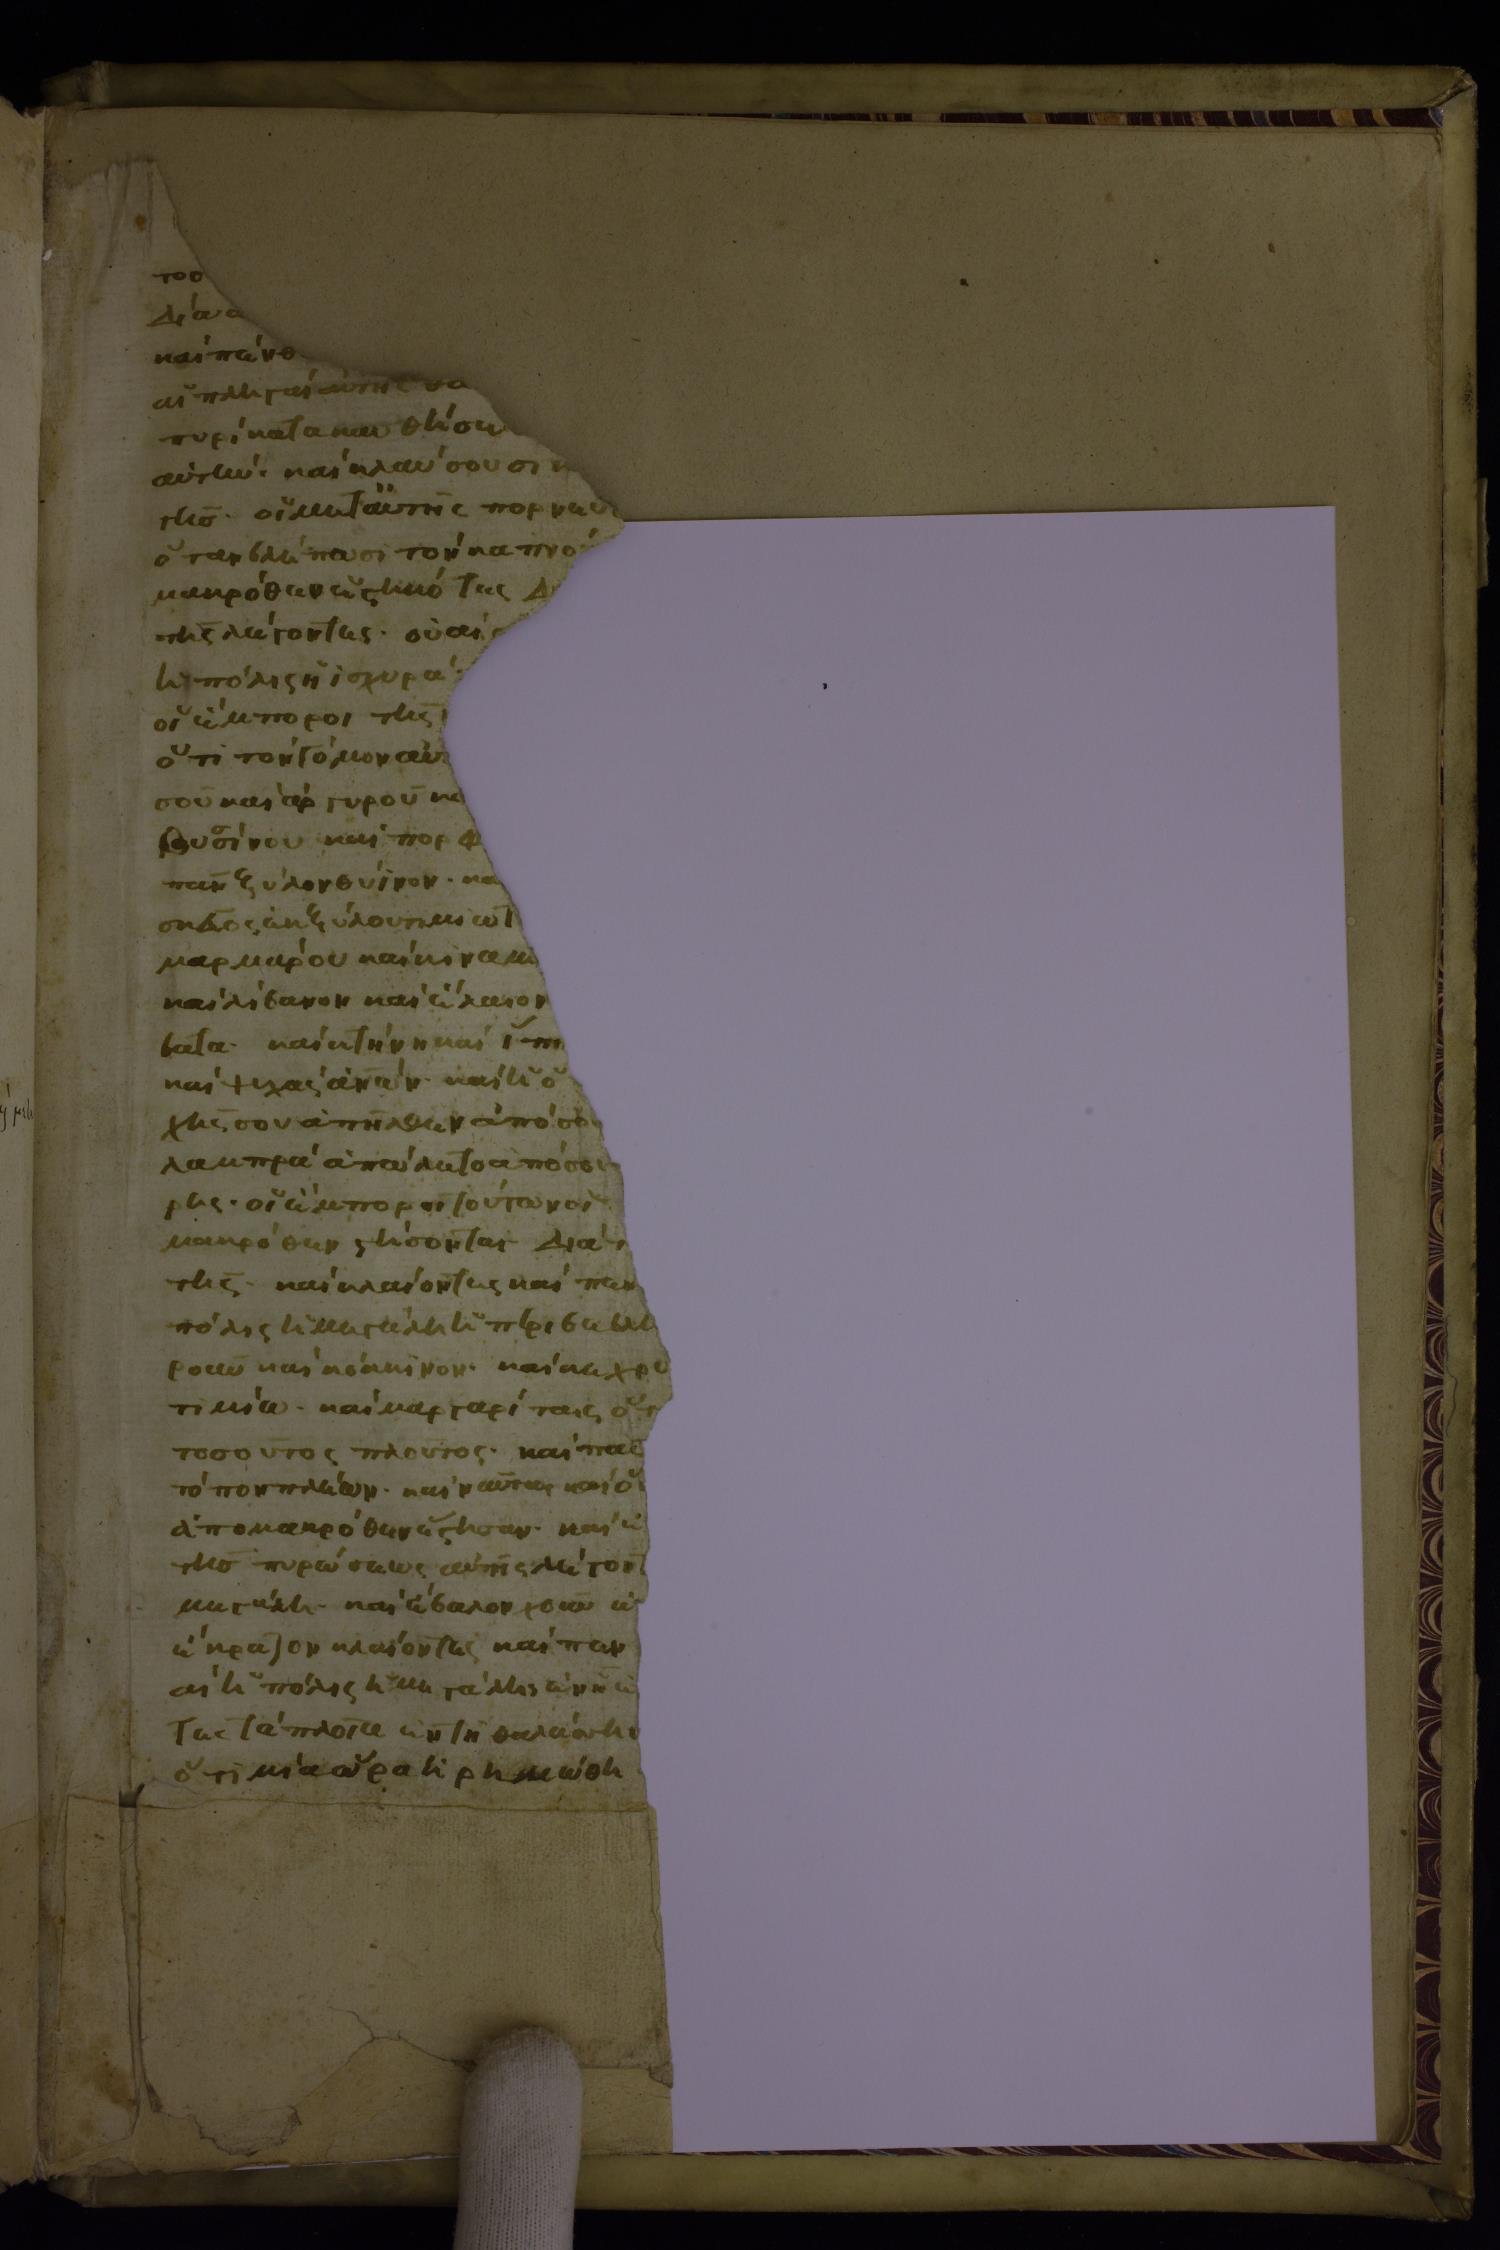 τοσ
δία α
καὶ πένθ
αἱ πληγαὶ αὐτῆς θα
πυρὶ κατακαυθήσε
αὐτὴν· καὶ κλαύσουσι κ
τῆσ· οἱ μετ' αὐτῆς πορνευ
ὅταν βλέπωσι τὸν καπνὸ
μακρόθεν ἑστηκότες δ
τῆς λέγοντες· οὐαὶ
ἡ πόλις ἡ ἰσχυρά
οἱ ἔμποροι τῆς
ὅτι τὸν γόμον αὐτ
σοῦ καὶ ἀργυροῦ κα
βυσίνου καὶ πορφ
πᾶν ξύλον θύϊνον· κα
σκεῦος ἐκ ξύλου τιμιωτ
μαρμάρου καὶ κιναμ
καὶ λίβανον καὶ ἔλαιον
βατα· καὶ κτήνη καὶ ἵππ
καὶ ψυχὰς ἀνων· καὶ ἡ ὀ
χῆς σου ἀπῆλθεν ἀπὸ σο
λαμπρὰ ἀπώλετο ἀπὸ σου
ρῃς· οἱ ἔμποροι τούτων οἱ
μακρόθεν στήσονται διὰ τ
τῆς· καὶ κλαίοντες καὶ πεν
πόλις ἡ μεγάλη ἡ περιβεβλη
ροῦν καὶ κόκκινον· καὶ κεχρυ
τιμίω· καὶ μαργαρίταις ὅτ
τοσοῦτος πλοῦτος· καὶ πᾶς
τόπον πλέων· καὶ ναῦται καὶ ὅ
ἀπὸ μακρόθεν ἔστησαν· καὶ ἐ
τῆσ πυρώσεως αὐτῆς λέγοντ
μεγάλη· καὶ ἔβαλον χοῦν ἐ
ἔκραζον κλαίοντες καὶ πεν
αὶ ἡ πόλις ἡ μεγάλη ἐν ᾗ ἐ
τες τὰ πλοῖα ἐν τῆ θαλάσση
ὅτι μία ὥρα ἠρημώθη